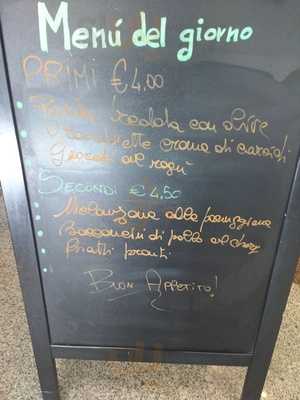 Menú del giorno
PRIMI €4,00
Pasta con olive
crema di carciofi
Gnocchi al ragù
SECONDI €4,50
Melanzana alla parmigiana
Bocconcini di pollo al curry
Piatti pronti
BUON APPETITO!